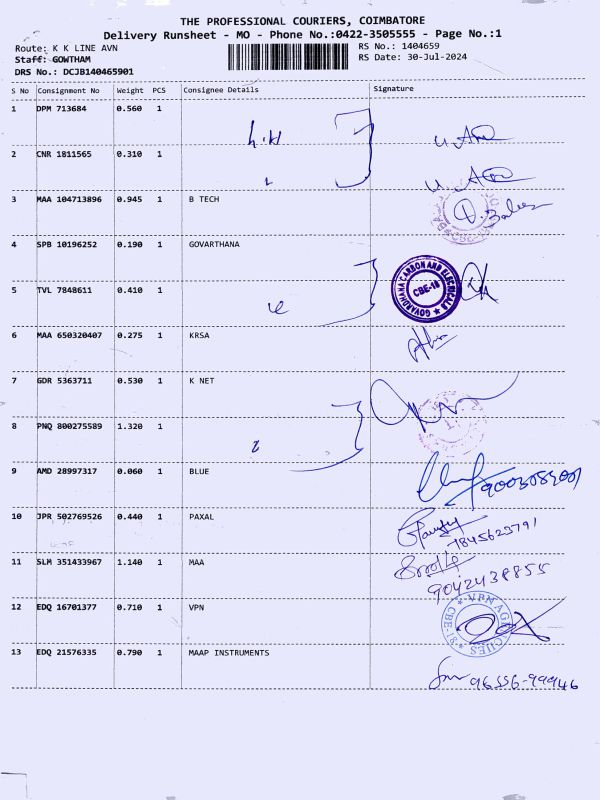 THE PROFESSIONAL COURIERS, COIMBATORE
Delivery Runsheet - MO - Phone No.:0422-3505555 - Page No.:1
Route: K K LINE AVN
RS No.: 1404659
Staff: GOWTHAM
RS Date: 30-Jul-2024
DRS No.: DCJB140465901
S No Consignment No Weight PCS Consignee Details Signature
1 DPM 713684 0.560 1
2 CNR 1811565 0.310 1
3 MAA 104713896 0.945 1 B TECH
4 SPB 10196252 0.190 1 GOVARTHANA
GOVARDHANA CARBON AND ELECTRICALS
CBE-18
5 TVL 7848611 0.410 1
6 MAA 650320407 0.275 1 KRSA
7 GDR 5363711 0.530 1 K NET
8 PNQ 800275589 1.320 1
9 AMD 28997317 0.060 1 BLUE
10 JPR 502769526 0.440 1 PAXAL
7845623791
11 SLM 351433967 1.140 1 MAA
9042438855
12 EDQ 16701377 0.710 1 VPN
VPN AGENCIES
CBE-18
13 EDQ 21576335 0.790 1 MAAP INSTRUMENTS
96556-99946